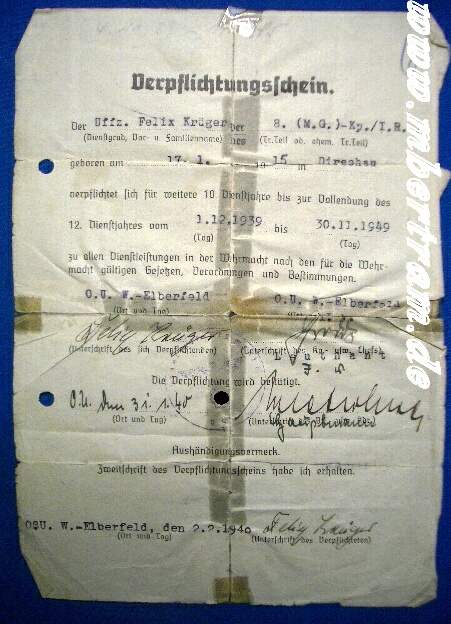 Verpflichtungsschein.
Der Uffz. Felix Krüger der 8. (M.G.)-Kp./I.R.
(Dienstgrad, Vor- u. Familienname) des (Tr.Teil od. ehem. Tr.Teil)
geboren am 17.1. 19 15 in Dirschau
verpflichtet sich für weitere 10 Dienstjahre bis zur Vollendung des
12. Dienstjahres vom 1.12.1939 bis 30.11.1949
(Tag) (Tag)
zu allen Dienstleistungen in der Wehrmacht nach den für die Wehr-
macht gültigen Gesetzen, Verordnungen und Bestimmungen.
O.U. W.-Elberfeld O.U. W.-Elberfeld
(Ort und Tag)
Felix Krüger
(Unterschrift des sich Verpflichtenden) (Unterschrift des
Die Verpflichtung wird bestätigt.
O.U. den 31.1.40
(Ort und Tag) Hauptmann
Aushändigungsvermerk.
Zweitschrift des Verpflichtungsscheins habe ich erhalten.
OSU. W.-Elberfeld, den 2.2.1940 Felix Krüger
(Ort und Tag) (Unterschrift des Verpflichteten)
www.mbertram.de